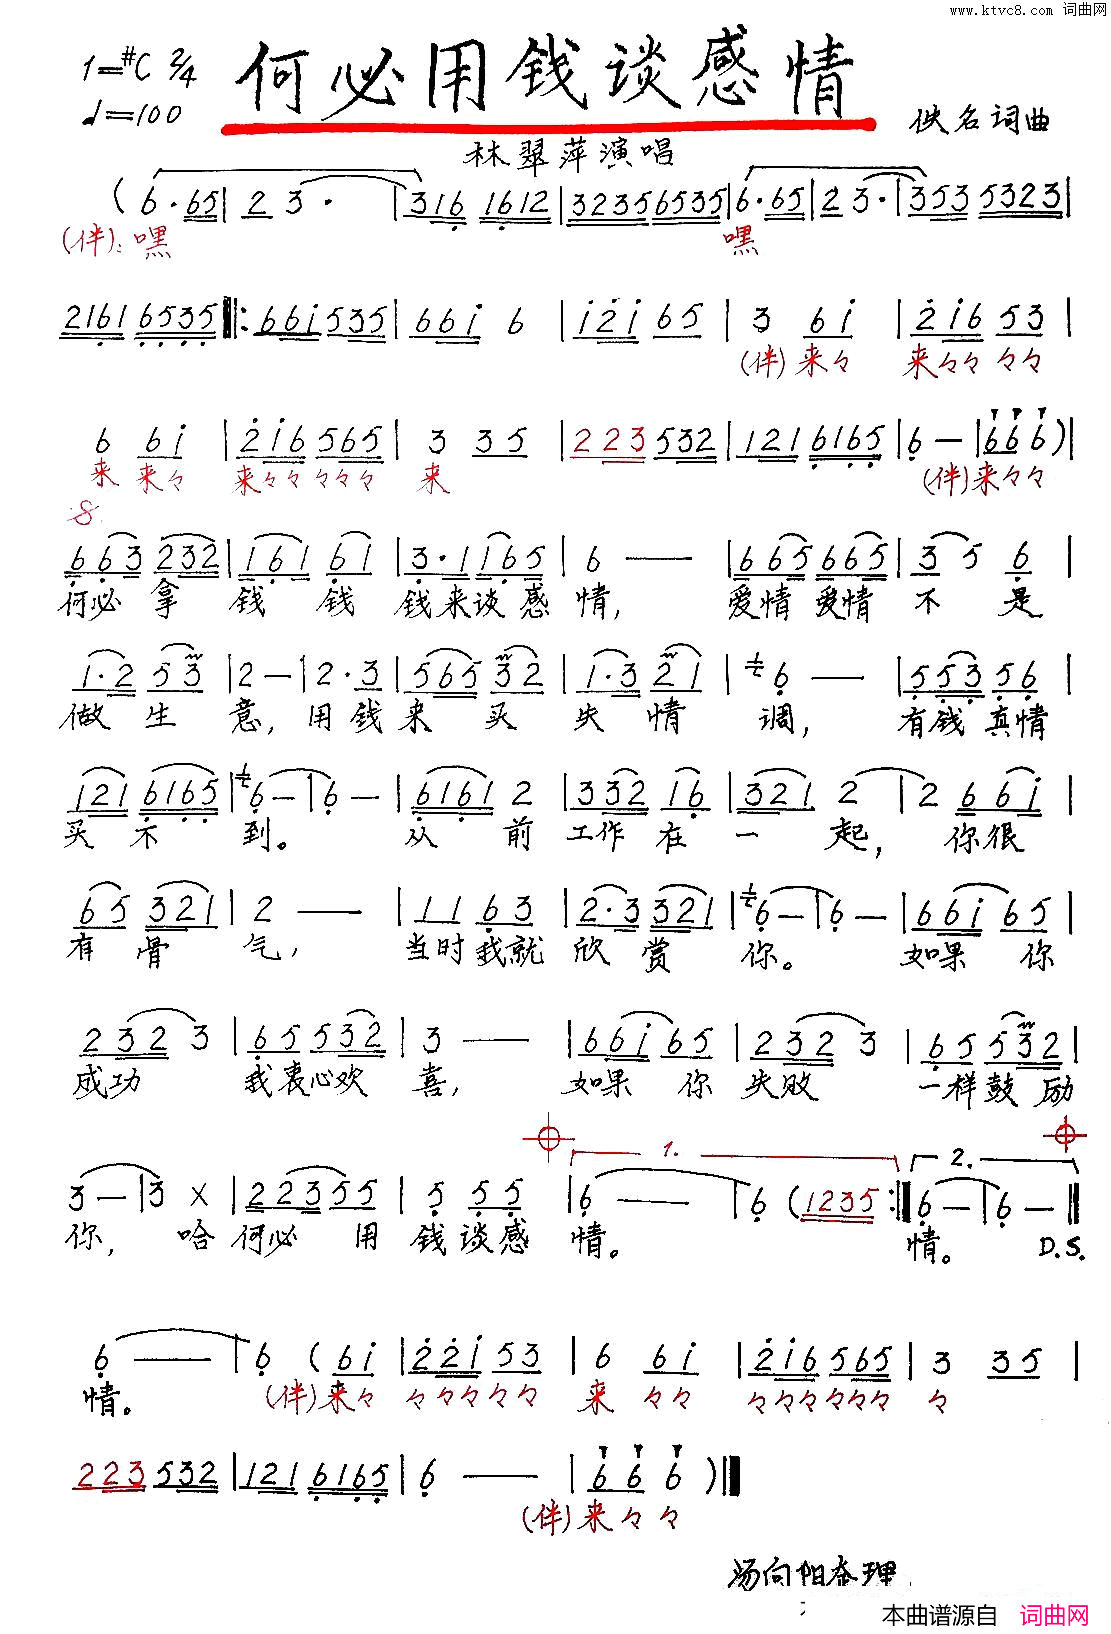 www.ktvc8.com 词曲网
1=#C 2/4 何必用钱谈感情
♩=100 佚名词曲
林翠萍演唱
( 6·65 | 2 3· | 3 1 6 1612 | 3235 6535 | 6·65 | 2 3· | 353 5323 |
(伴): 嘿 嘿
2161 6535 ‖: 66i 535 | 66i 6 | i2i 65 | 3 6i | 2i6 53 |
(伴)来々 来々々 々々
6 6i | 2i6 565 | 3 35 | 223 532 | 121 6165 | 6 — | 6 6 6 ) |
来 来々 来々々 々々々 来 (伴)来々々
663 232 | 161 61 | 3·1 165 | 6 — — | 665 665 | 3 5 6 |
何必 拿 钱 钱 钱来谈感 情, 爱情 爱情 不 是
1·2 53 | 2 — | 2·3 | 565 32 | 1·3 21 | 6 — — | 553 56 |
做 生 意, 用钱来 买 失 情 调, 有钱真情
121 6165 | 6 — | 6 — | 6161 2 | 332 16 | 321 2 | 2 66i |
买 不 到。 从 前 工作在 一 起, 你很
65 321 | 2 — — | 11 63 | 2·3 321 | 6 — | 6 — | 66i 65 |
有 骨 气, 当时我就 欣 赏 你。 如果 你
232 3 | 65 532 | 3 — — | 66i 65 | 232 3 | 65 532 |
成功 我衷心欢 喜, 如果 你 失败 一样鼓励
1. 2.
3 — | 3 X | 223 55 | 5 5 5 | 6 — — | 6 ( 1235 :‖ 6 — | 6 — ‖
你, 哈 何必 用 钱谈感 情。 情。 D.S.
6 — — | 6 ( 6i | 22i 53 | 6 6i | 2i6 565 | 3 35 |
情。 (伴)来々 々々々々々 来 々々 々々々々々々 々
223 532 | 121 6165 | 6 — — | 6 6 6 ) ‖
(伴)来々々
汤向阳整理
本曲谱源自 词曲网